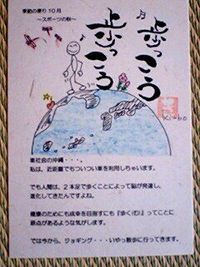 季節の便り10月
～スポーツの秋～
歩っこう
歩っこう
車社会の沖縄・・・。
私は、近距離でもついつい車を利用しちゃいます。
でも人間は、2本足で歩くことによって脳が発達し、
進化してきたんですよね。
健康のためにも成幸を目指すにも『歩く(行)』ってことに
原点があるような気がします。
では今から、ジョギング・・・いやっ散歩に行ってきます。